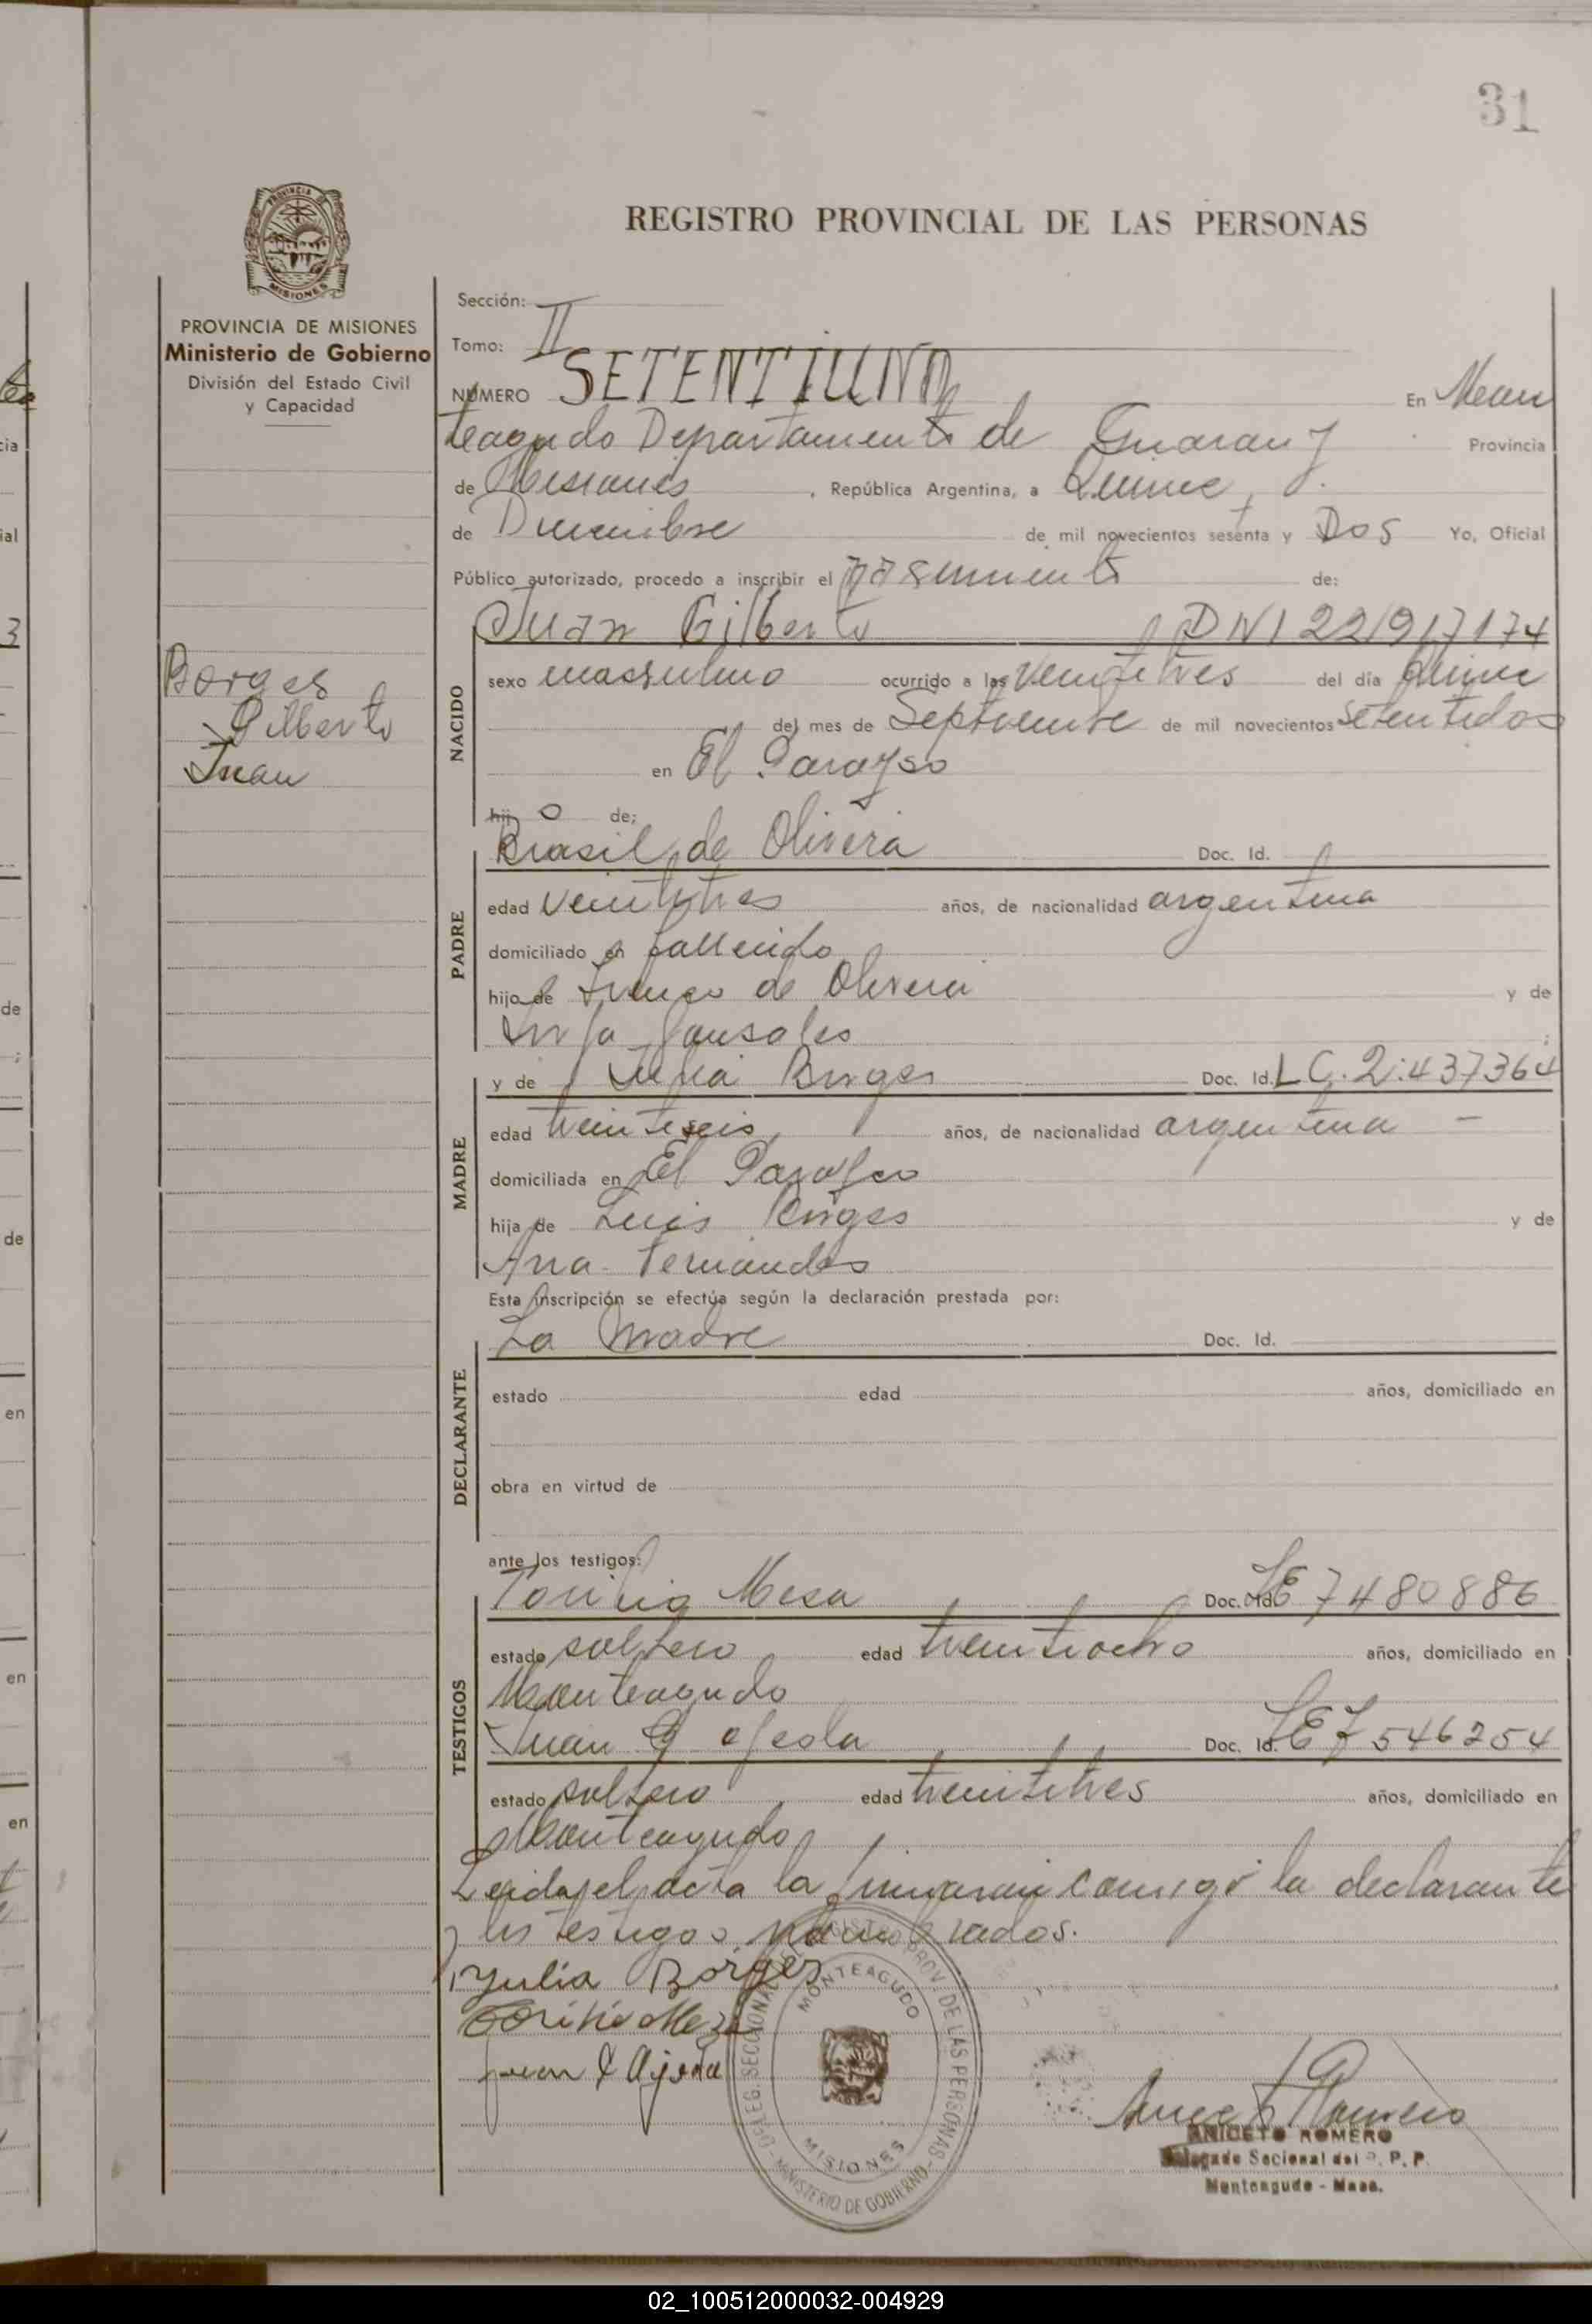 31
REGISTRO PROVINCIAL DE LAS PERSONAS
PROVINCIA MISIONES
PROVINCIA DE MISIONES
Ministerio de Gobierno
División del Estado Civil
y Capacidad
Borges
Gilberto
Juan
Sección:
Tomo: II
NUMERO SETENTIUNO En Mon
teagudo Departamento de Guarany Provincia
de Misiones, República Argentina, a Quince
de Diciembre de mil novecientos sesenta y Dos Yo, Oficial
Público autorizado, procedo a inscribir el nasimiento de:
NACIDO
Juan Gilberto DNI 22917174
sexo masculino ocurrido a las veintitres del día Quince
del mes de Septiembre de mil novecientos setentidos
en El Parayso
hijo de:
PADRE
Brasil de Olivera Doc. Id.
edad veintitres años, de nacionalidad argentina
domiciliado en fallecido
hijo de de Olivera y de
Gonsales
MADRE
y de Julia Borges Doc. Id. L C. 2.437364
edad años, de nacionalidad argentina -
domiciliada en El Parayso
hija de Luis Borges y de
Ana Fernandes
Esta inscripción se efectúa según la declaración prestada por:
DECLARANTE
La Madre Doc. Id.
estado edad años, domiciliado en
obra en virtud de
ante los testigos:
TESTIGOS
Mesa Doc. Id. LE 7480886
estado soltero edad años, domiciliado en
Monteagudo
Juan Doc. Id. LE 7546254
estado soltero edad años, domiciliado en
Monteagudo
Leida el acta la firmaran comigo la declarante
y los testigos nombrados.
Yulia Borges
Juan
DELEG. SECCIONAL REGISTRO PROV. DE LAS PERSONAS - MINISTERIO DE GOBIERNO
MONTEAGUDO
MISIONES
ANICETO ROMERO
Delegado Secional del R. P. P.
Monteagudo - Mnes.
02_100512000032-004929